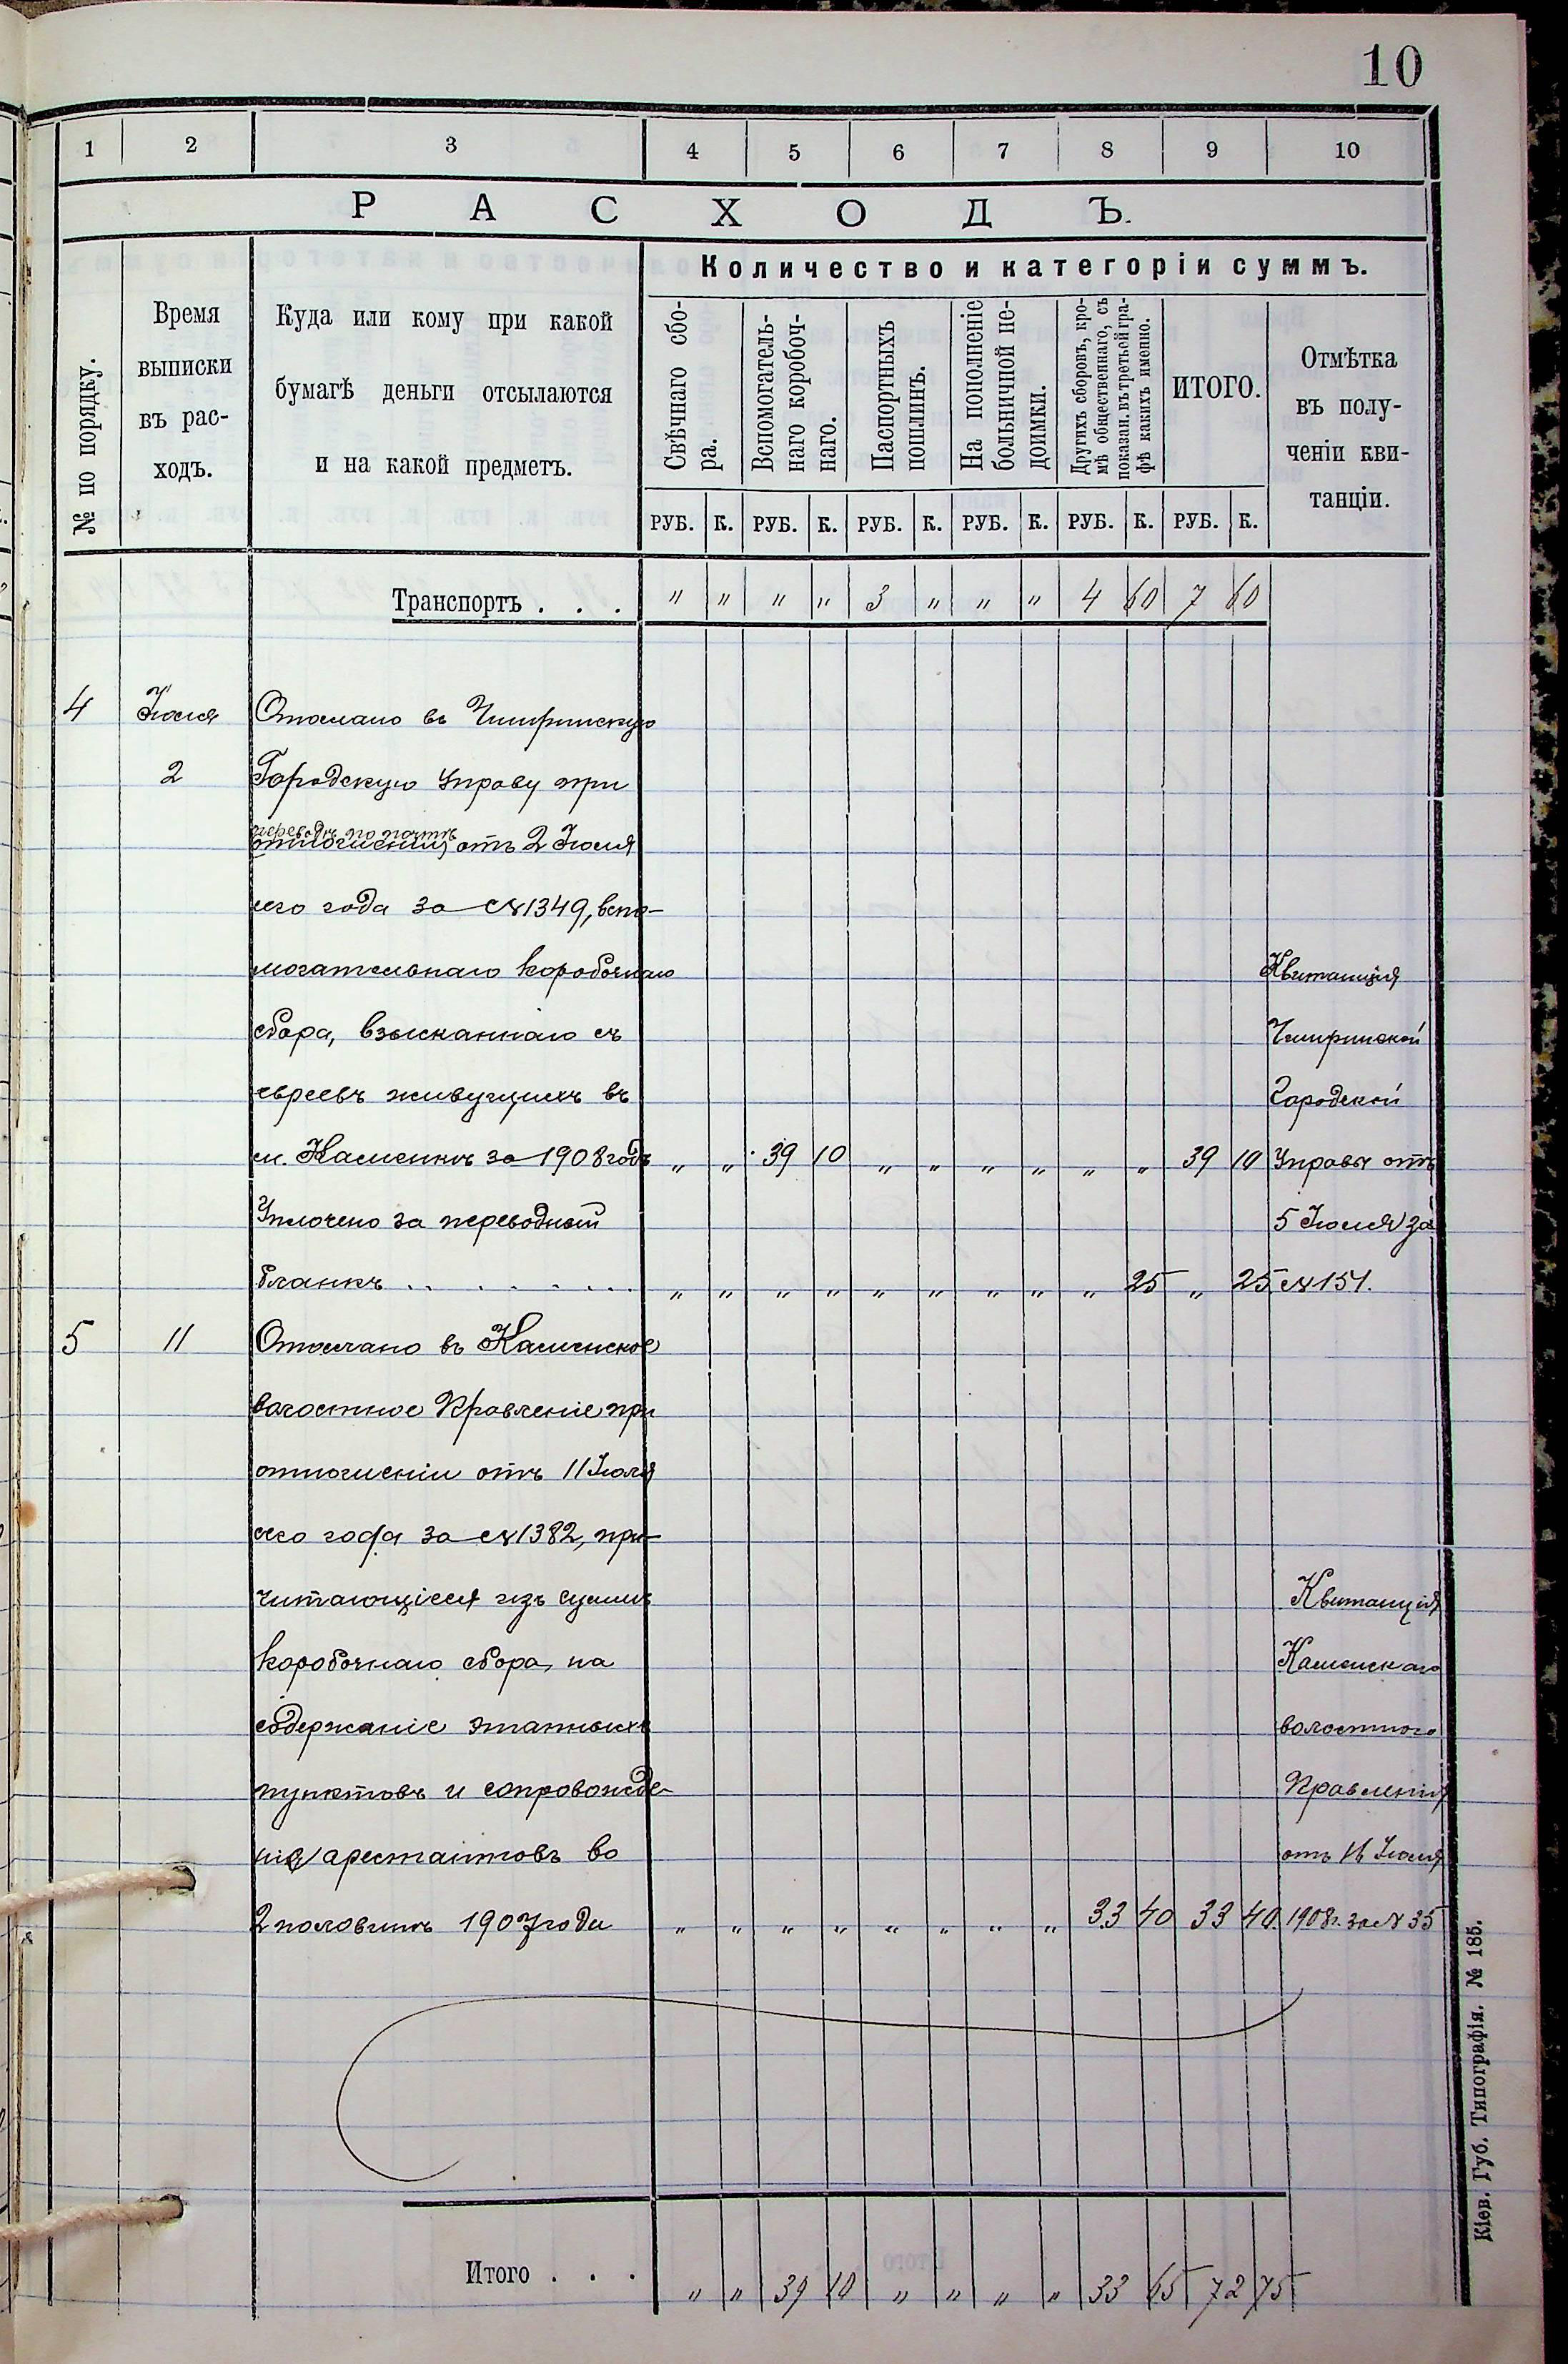 10
1 2 3 4 5 6 7 8 9 10
РАСХОДЪ.
№ по порядку.
Время
выписки
въ рас-
ходъ.
Куда или кому при какой
бумагѣ деньги отсылаются
и на какой предметъ.
Количество и категоріи суммъ.
Свѣчнаго сбо-
ра.
Вспомогатель-
наго коробоч-
наго.
Паспортныхъ
пошлинъ.
На пополненіе
больничной не-
доимки.
Другихъ сборовъ, кро-
мѣ общественнаго, съ
показан. въ третьей гра-
фѣ какихъ именно.
ИТОГО.
Отмѣтка
въ полу-
ченіи кви-
танціи.
РУБ. К. РУБ. К. РУБ. К. РУБ. К. РУБ. К. РУБ. К.
Транспортъ . . . " " " " 3 " " " 4 60 7 60
4 Іюля Отослано въ Чигиринскую
2 Городскую Управу при
переводѣ по почтѣ
отношеніи отъ 2 Іюля
сего года за № 1349, вспо-
могательнаго коробочнаго Квитанція
сбора, взысканнаго съ Чигиринской
евреевъ живущихъ въ Городской
м. Каменкѣ за 1908 годъ " " 39 10 " " " " " " 39 10 Управы отъ
Уплочено за переводный 5 Іюля за
бланкъ . . . . . . . . " " " " " " " " " 25 " 25 № 151.
5 11 Отослано въ Каменское
волостное Правленіе при
отношеніи отъ 11 Іюля
сего года за № 1382, при-
читающіеся изъ суммъ Квитанція
коробочнаго сбора, на Каменскаго
содержаніе этапныхъ волостного
пунктовъ и сопровожде- Правленія
нія арестантовъ во отъ 16 Іюля
2 половинѣ 1907 года " " " " " " " " 33 40 33 40. 1908 г. за № 35
Итого . . . " " 39 10 " " " " 33 65 72 75
Кіев. Губ. Типографія. № 185.